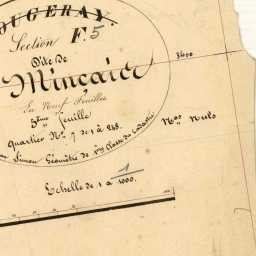 OUGERAY.
Section F.5
Dite De
Mincaier
En Neuf Feuilles
5ème Feuille
quartier Nos 7 de 1 à 248.
Simon Géomètre de 1ère Classe du Cadastre
Echelle de 1 à 1000.
Nos Nuls